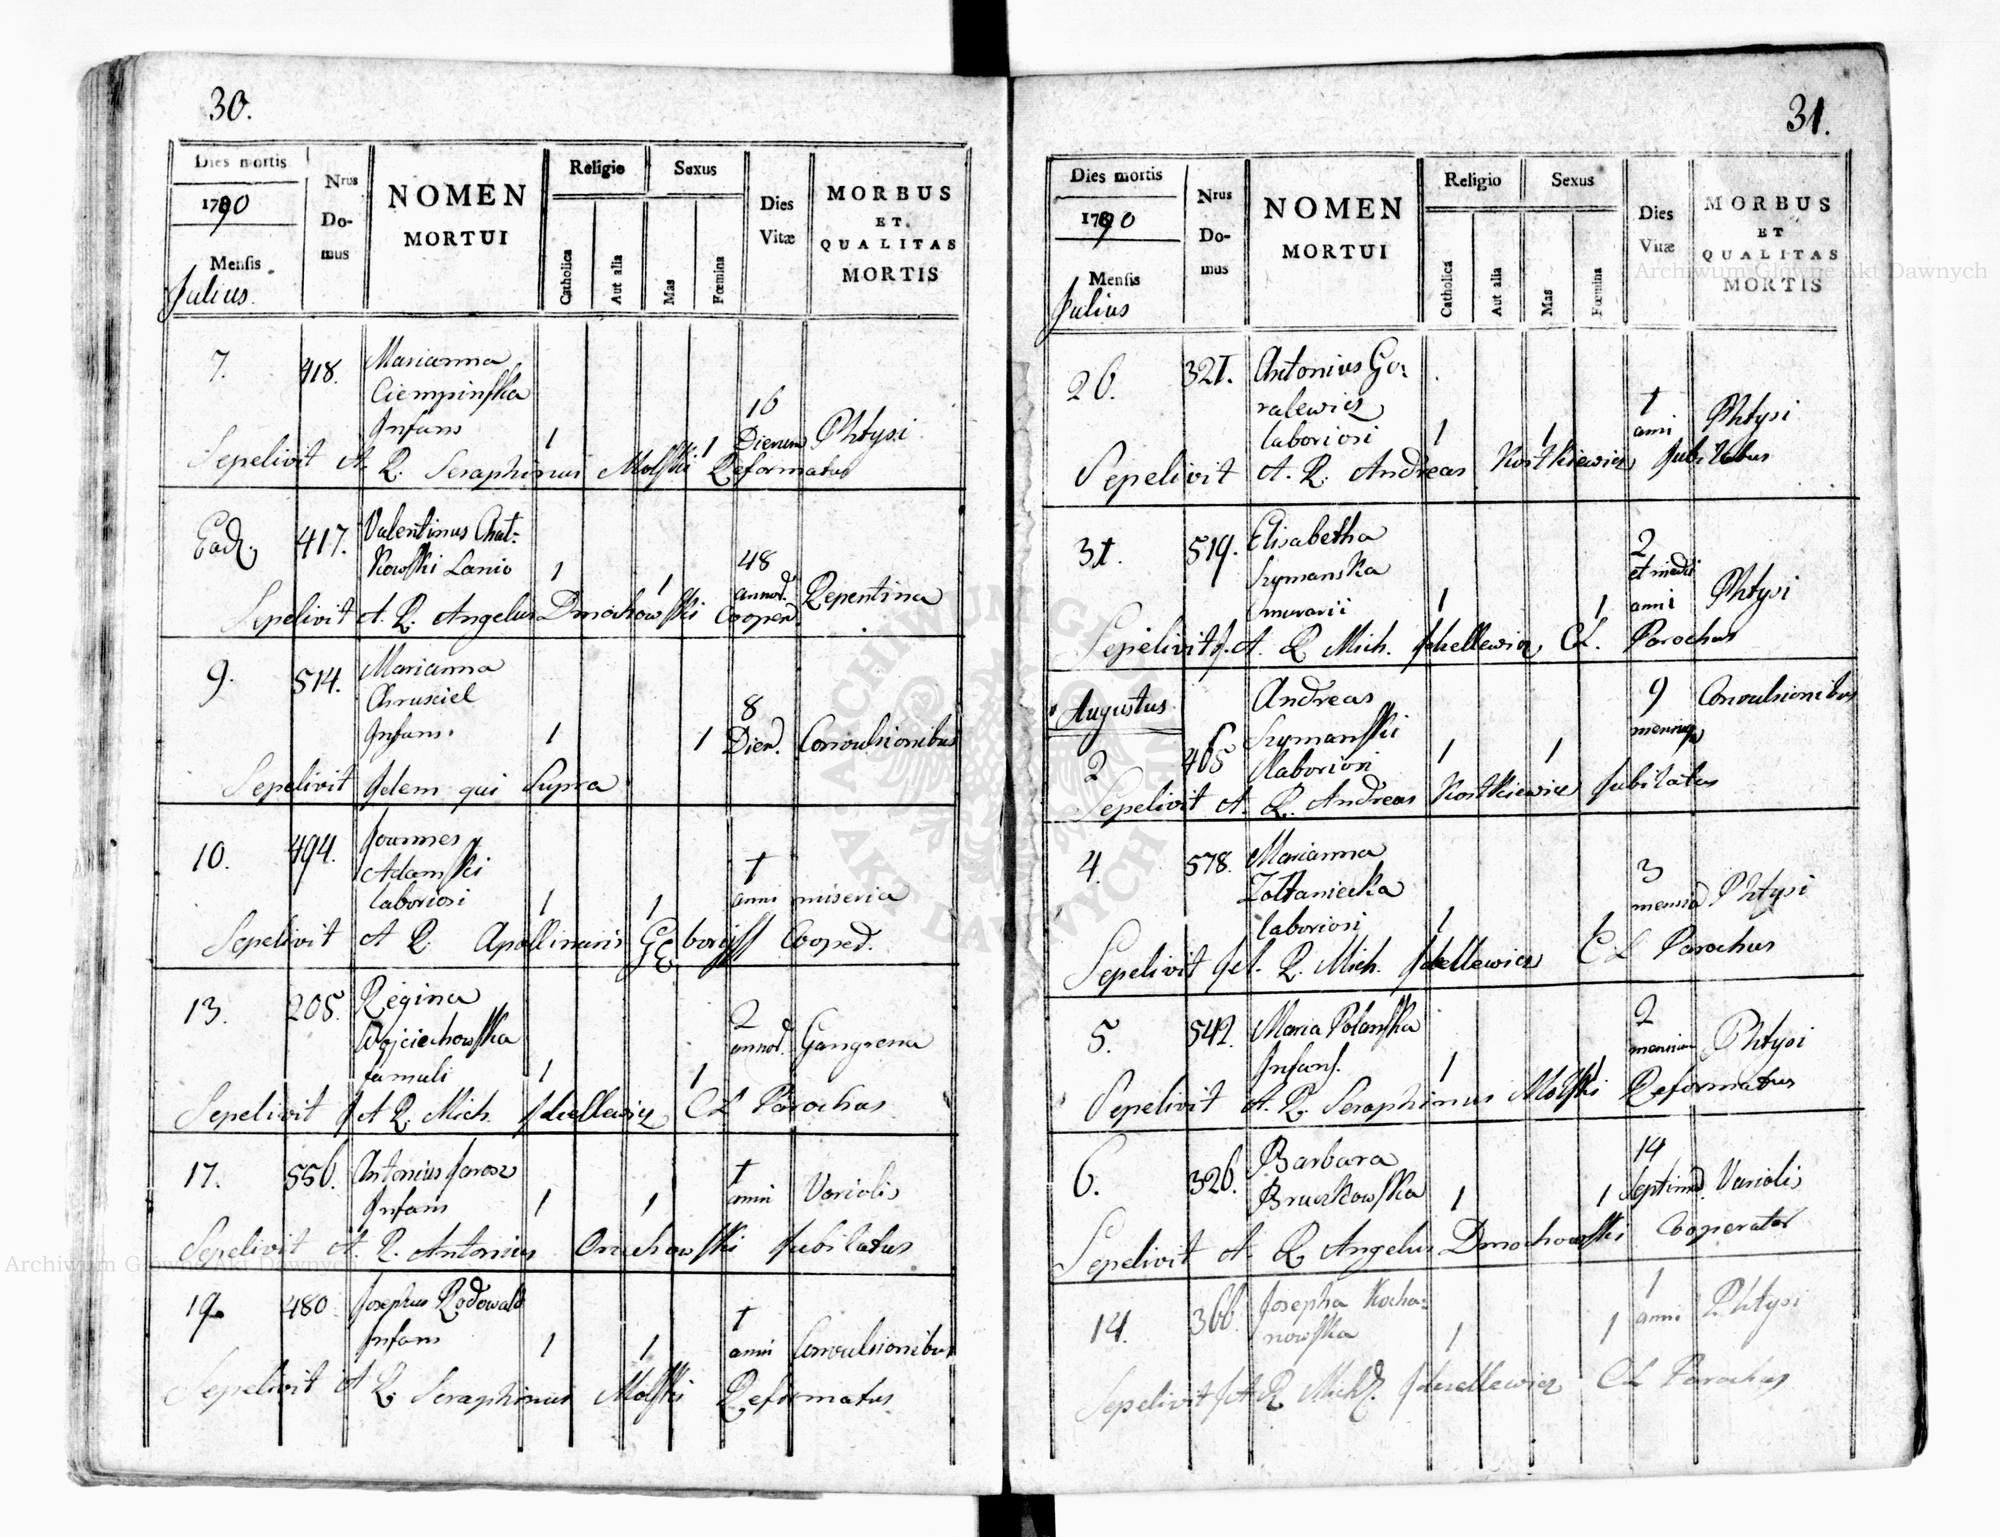 30.
Dies mortis
1790
Mensis
Julius.
Nrus
Do-
mus
NOMEN
MORTUI
Religio
Catholica
Aut alia
Sexus
Mas
Fœmina
Dies
Vitæ
MORBUS
ET
QUALITAS
MORTIS
7. 418. Marianna
Ciempinska
Infans 1 1 16 Dierum Phtysi
Sepelivit A. R. Seraphinus Molski Reformatus
Ead. 417. Valentinus Chat-
kowski Lanio 1 1 48 annor. Repentina
Sepelivit A. R. Angelus Dmochowski Cooper.
9. 514. Marianna
Chrusciel
Infans 1 1 8 Dier. Convulsionibus
Sepelivit Idem qui Supra
10. 494. Joannes
Adamski
laboriosi 1 1 1 anni miseria
Sepelivit A R. Apollinaris Cooper.
13. 205. Regina
Woyciechowska
famuli 1 1 2 annor. Gangrena
Sepelivit J A R. Mich. CL Parochus
17. 556. Antonius Jarosz
Infans 1 1 1 anni Variolis
Sepelivit A. R. Antonius Jubilatus
19. 480. Josephus Rodowald
Infans 1 1 1 anni Convulsionibus
Sepelivit A R. Seraphinus Molski Reformatus
31.
Dies mortis
1790
Mensis
Julius
Nrus
Do-
mus
NOMEN
MORTUI
Religio
Catholica
Aut alia
Sexus
Mas
Fœmina
Dies
Vitæ
MORBUS
ET
QUALITAS
MORTIS
26. 321. Antonius Go-
ralewicz
laboriosi 1 1 1 anni Phtysi
Sepelivit A. R. Andreas Kostkiewicz Jubilatus
31. 519. Elisabetha
Szymanska
murarii 1 1 2 et medii anni Phtysi
Sepelivit J. A. R. Mich. CL. Parochus
Augustus
2 405 Andreas
Szymanski
laboriosi 1 1 9 mensium Convulsionibus
Sepelivit A. R. Andreas Kostkiewicz Jubilatus
4. 578. Marianna
Zoltaniecka
laboriosi 1 1 3 mensium Phtysi
Sepelivit J A. R. Mich. CL Parochus
5. 542. Maria Polanska
Infans. 1 1 2 mensium Phtysi
Sepelivit A. R. Seraphinus Molski Reformatus
6. 326. Barbara
Bruczkowska 1 1 14 Septima. Variolis
Sepelivit A. R. Angelus Dmochowski Cooperator
14. 366. Josepha Kocha-
nowska 1 1 1 anni Phtysi
Sepelivit J A R. Mich. CL Parochus
Archiwum Główne Akt Dawnych
Archiwum Główne Akt Dawnych
ARCHIWUM GŁÓWNE
AKT DAWNYCH